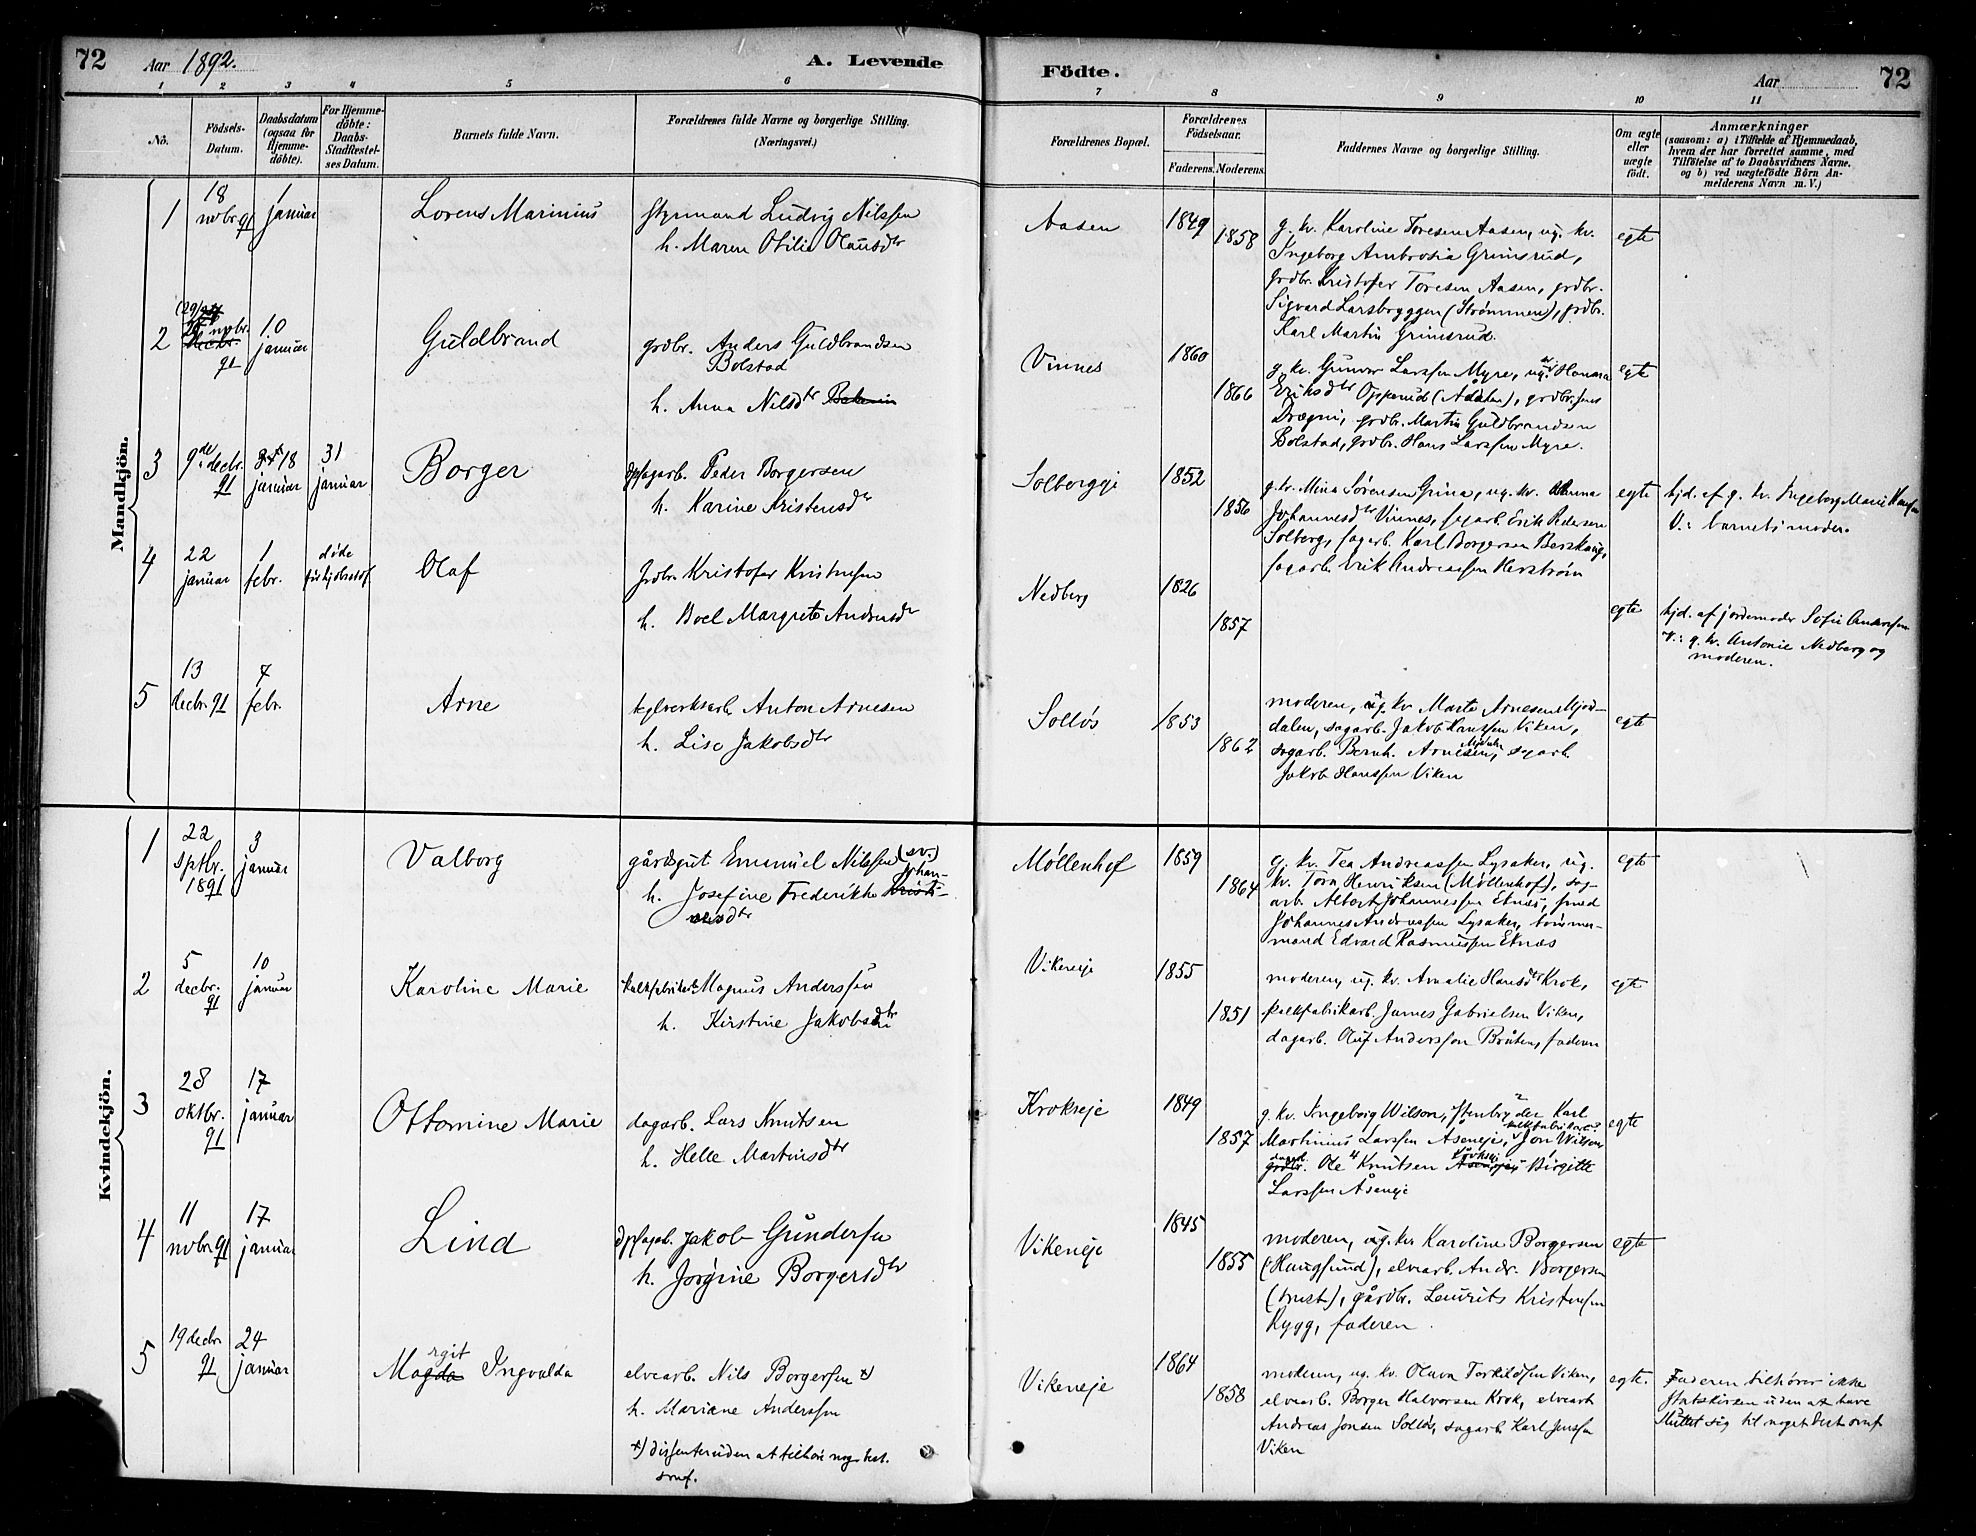 72 Aar 1892. A. Levende
Födte. Aar 72
1 2 3 4 5 6
7 8 9 10 11
No.
Födsels-Datum.
Daabsdatum (ogsaa for Hjemme-döbte).
For Hjemme-döbte: Daabs-Stadfæstel-ses Datum.
Barnets fulde Navn.
Forældrenes fulde Navne og borgerlige Stilling.
(Næringsvei.)
Forældrenes Bopæl.
Forældrenes Födselsaar.
Faderens. Moderens.
Faddernes Navne og borgerlige Stilling.
Om ægte eller uægte födt.
Anmærkninger
(saasom: a) i Tilfælde af Hjemmedaab,
hvem der har forrettet samme, med
Tilföielse af to Daabsvidners Navne.
og b) ved uægtefödte Börn An-
melderens Navn m. V.)
Mandkjön.
1 18 novbr 91 1 januar Lorens Marinius
Styrmand Ludvig Nilssen
h. Maren Otilie Olausdtr
Aasen 1849 1858
g. kv. Karoline Toresen Aasen, ug. kv.
Ingeborg Ambrosia Grimsrud,
grdbr. Kristofer Toresen Aasen, grdbr.
Sigvard Larsbryggen (Strømmen), grdbr.
Karl Martin Grimsrud.
egte
2 novbr. 91 10 januar Guldbrand
grdbr. Anders Guldbrandsen
Bolstad
h. Anna Nilsdtr
Vinnes 1860 1866
g. kv. Gunvor Larssen Myre, ug. kv. Hanna
Eriksdtr Opperud (Ådalen), grdbr. Jens
Drægni, grdbr. Martin Guldbrandsen
Bolstad, grdbr. Hans Larssen Myre.
egte
3 9de decbr. 91 18 januar 31 januar Borger
dpsagarb. Peder Borgersen
h. Karine Kristensdtr
Solbergeje 1852 1856
g. kv. Mina Sørensen Grina, ug. kv. Anna
Johannesdtr Vinnes, sagarb. Erik Pedersen
Solberg, sagarb. Karl Borgersen Berskaug,
sagarb. Erik Andreassen Herstrøm
egte
hjd. af g. kv. Ingeborg Marie Hansen
V.: barnets moder.
4 22 januar 1 febr. døde før kjdsstadf. Olaf
grdbr. Kristofer Kristensen
h. Boel Margrete Andersdtr
Nedberg 1826 1857
egte
hjd. af jordemoder Sofie Andersen
v.: g. kv. Antonie Nedberg og
moderen.
5 13 decbr. 91 7 febr. Arne
teglverksarb. Anton Arnesen
h. Lise Jakobsdtr
Solløs 1853 1862
moderen, ug. kv Marte Arnesen Mjøn-
dalen, sagarb. Jakob Hanssen Viken,
sagarb. Bernh. Arnesen, sagarb.
Jakob Hanssen Viken
egte
Kvindekjön.
1 22 septbr. 1891 3 januar Valborg
gårdsgut Emanuel Nilssen (sv.)
h. Josefine Frederikke Johan-
nesdtr
Møllenhof 1859 1864
g. kv. Tea Andreassen Lysaker, ug.
kv. Tora Henriksen (Møllenhof), sag-
arb. Albert Johannessen Etnæs, smed
Johannes Andreassen Lysaker, tømmer-
mand Edvard Rasmussen Etnæs
egte
2 5 decbr. 91 10 januar Karoline Marie
kalkfabrikarb Magnus Anderssen
h. Kirstine Jakobsdtr
Vikeneje 1855 1851
moderen, ug. kv. Amalie Hansdtr Krok,
kalkfabrikarb. James Gabrielsen Viken,
dagarb. Oluf Anderssen Bråten, faderen
egte
3 28 oktbr. 91 17 januar Ottomine Marie
dagarb. Lars Knutsen
h. Helle Martinsdtr
Krokseje 1849 1857
g. kv. Ingeborg Wilson, stenbryder Karl
Martinius Larssen Åseneje, Jon Wilson
dagarb. Ole Knutsen Krokseje Birgitte
Larssen Åseneje
egte
4 11 novbr 91 17 januar Lind
dpsagarb. Jakob Gundersen
h. Jørgine Borgersdtr
Vikeneje 1845 1855
moderen, ug. kv Karoline Borgersen
(Haugsund), elvearb. Andr. Borgersen
gårdbr. Laurits Kristensen
Rygg, faderen.
egte
5 19 decbr 91 24 januar Margit Ingvalda
elvearb. Nils Borgersen *)
h. Mariane Anderssen
*) dissenter uden at tilhøre noget best.
smf.
Vikeneje 1864 1858
moderen, ug. kv. Olava Torkildsen Viken,
elvearb. Borger Halvorsen Krok, elvearb
Andreas Jonsen Solløs, sagarb. Karl Jenssen
Viken
egte.
Faderen tilhører ikke
statskirken uden at have
sluttet sig til noget best. smf.